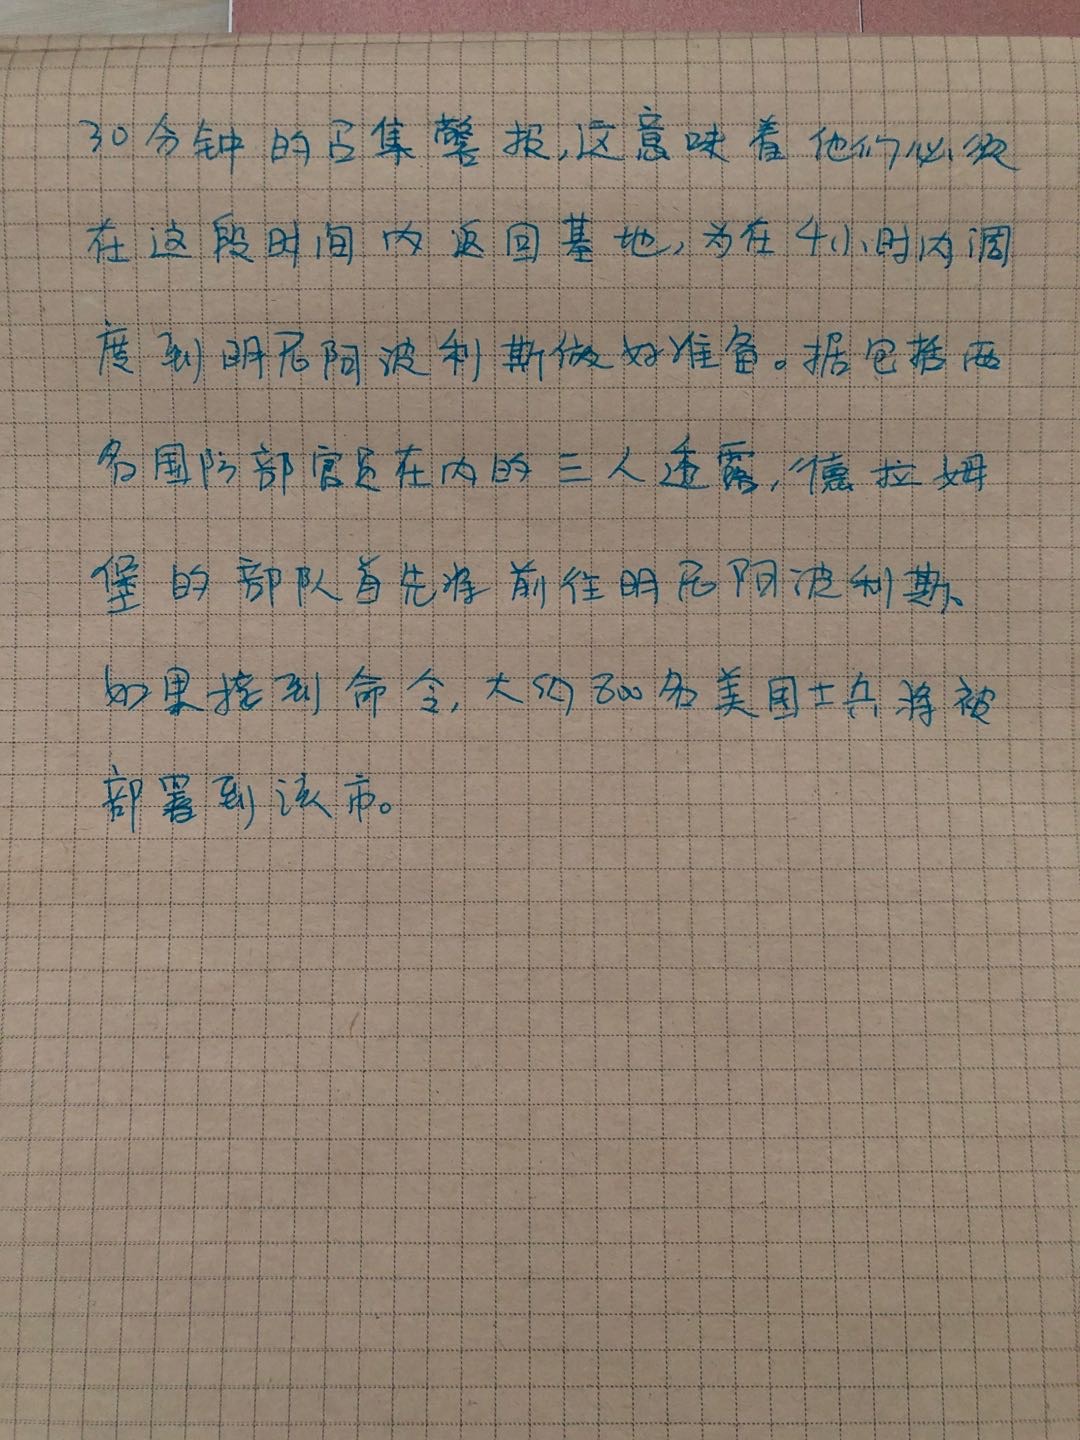 30分钟的召集警报,这意味着他们必须
在这段时间内返回基地,为在4小时内调
度到明尼阿波利斯做好准备。据包括两
名国防部官员在内的三人透露,德拉姆
堡的部队首先将前往明尼阿波利斯。
如果接到命令,大约800名美国士兵将被
部署到该市。